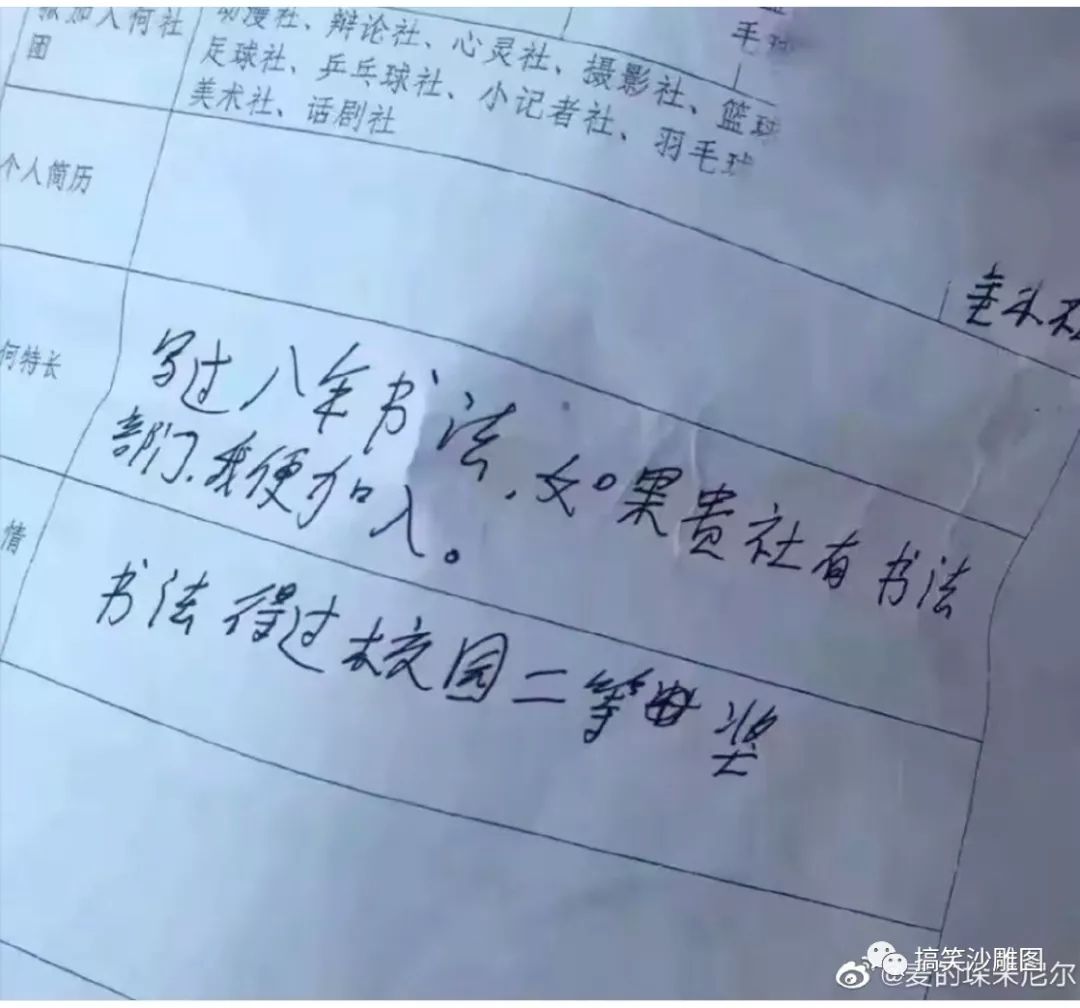 加入何社
团
动漫社、辩论社、心灵社、摄影社、篮球
足球社、乒乓球社、小记者社、羽毛球
美术社、话剧社
毛球
个人简历
美术社
何特长
写过八年书法，如果贵社有书法
部门，我便加入。
情
书法得过校园二等奖
搞笑沙雕图
@麦的垛果尼尔